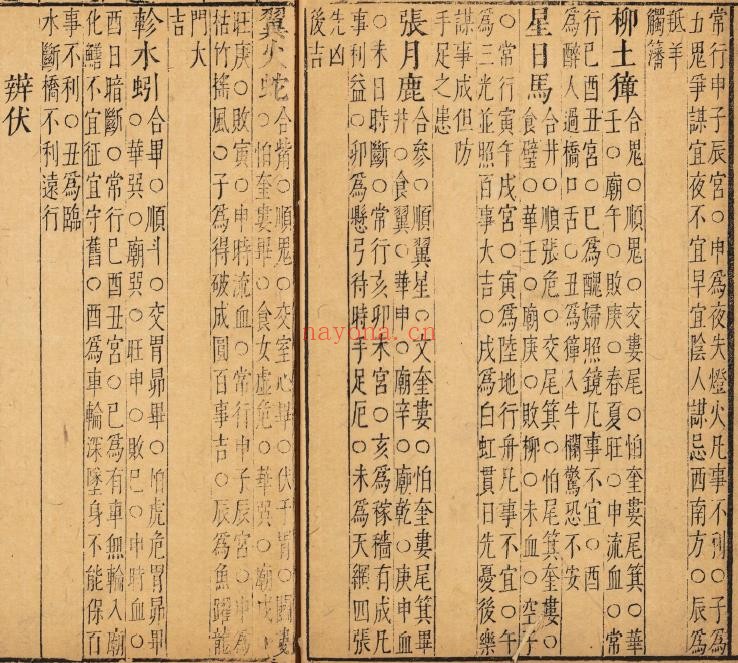 常行申子辰宮○申為夜失燈火凡事不利○子為
五鬼爭謀宜夜不宜早宜陰人謀忌西南方○辰為
羝羊觸藩
柳土獐 合鬼○順鬼○交婁尾○怕奎婁尾箕○華
壬○廟午○敗庚○春夏旺○申流血○常
行巳酉丑宮○巳為醜婦照鏡凡事不宜○酉
為醉人過橋口舌○丑為獐入牛欄驚恐不安
星日馬 合井○順張危○交尾箕○怕尾箕奎婁○
食壁○華壬○廟庚○敗柳○未血○空子
○常行寅午戌宮○寅為陸地行舟凡事不宜○午
為三光並照百事大吉○戌為白虹貫日先憂後樂
謀事成但防
手足之患
張月鹿 合參○順翼星○交奎婁○怕奎婁尾箕畢
井○食翼○華申○廟辛○廟乾○庚申血
○未日時斷○常行亥卯未宮○亥為稼穡有成凡
事利益○卯為懸弓待時手足厄○未為天網四張
先凶
後吉
翼火蛇 合觜○順鬼○交室心畢○伏子胃○鬪婁
○怕奎婁畢○食女虛危○華巽○廟戌○
旺庚○敗寅○申時流血○常行申子辰宮○申為
枯竹搖風○子為得破成圓百事吉○辰為魚躍龍
門大
吉
軫水蚓 合畢○順斗○交胃昴畢○怕虎危胃昴畢
○華巽○廟巽○旺申○敗巳○申時血○
酉日暗斷○常行巳酉丑宮○巳為有車無輪入廟
化鱔不宜征宜守舊○酉為車輪深墜身不能保百
事不利○丑為臨
水斷橋不利遠行
辨伏
nayona.cn